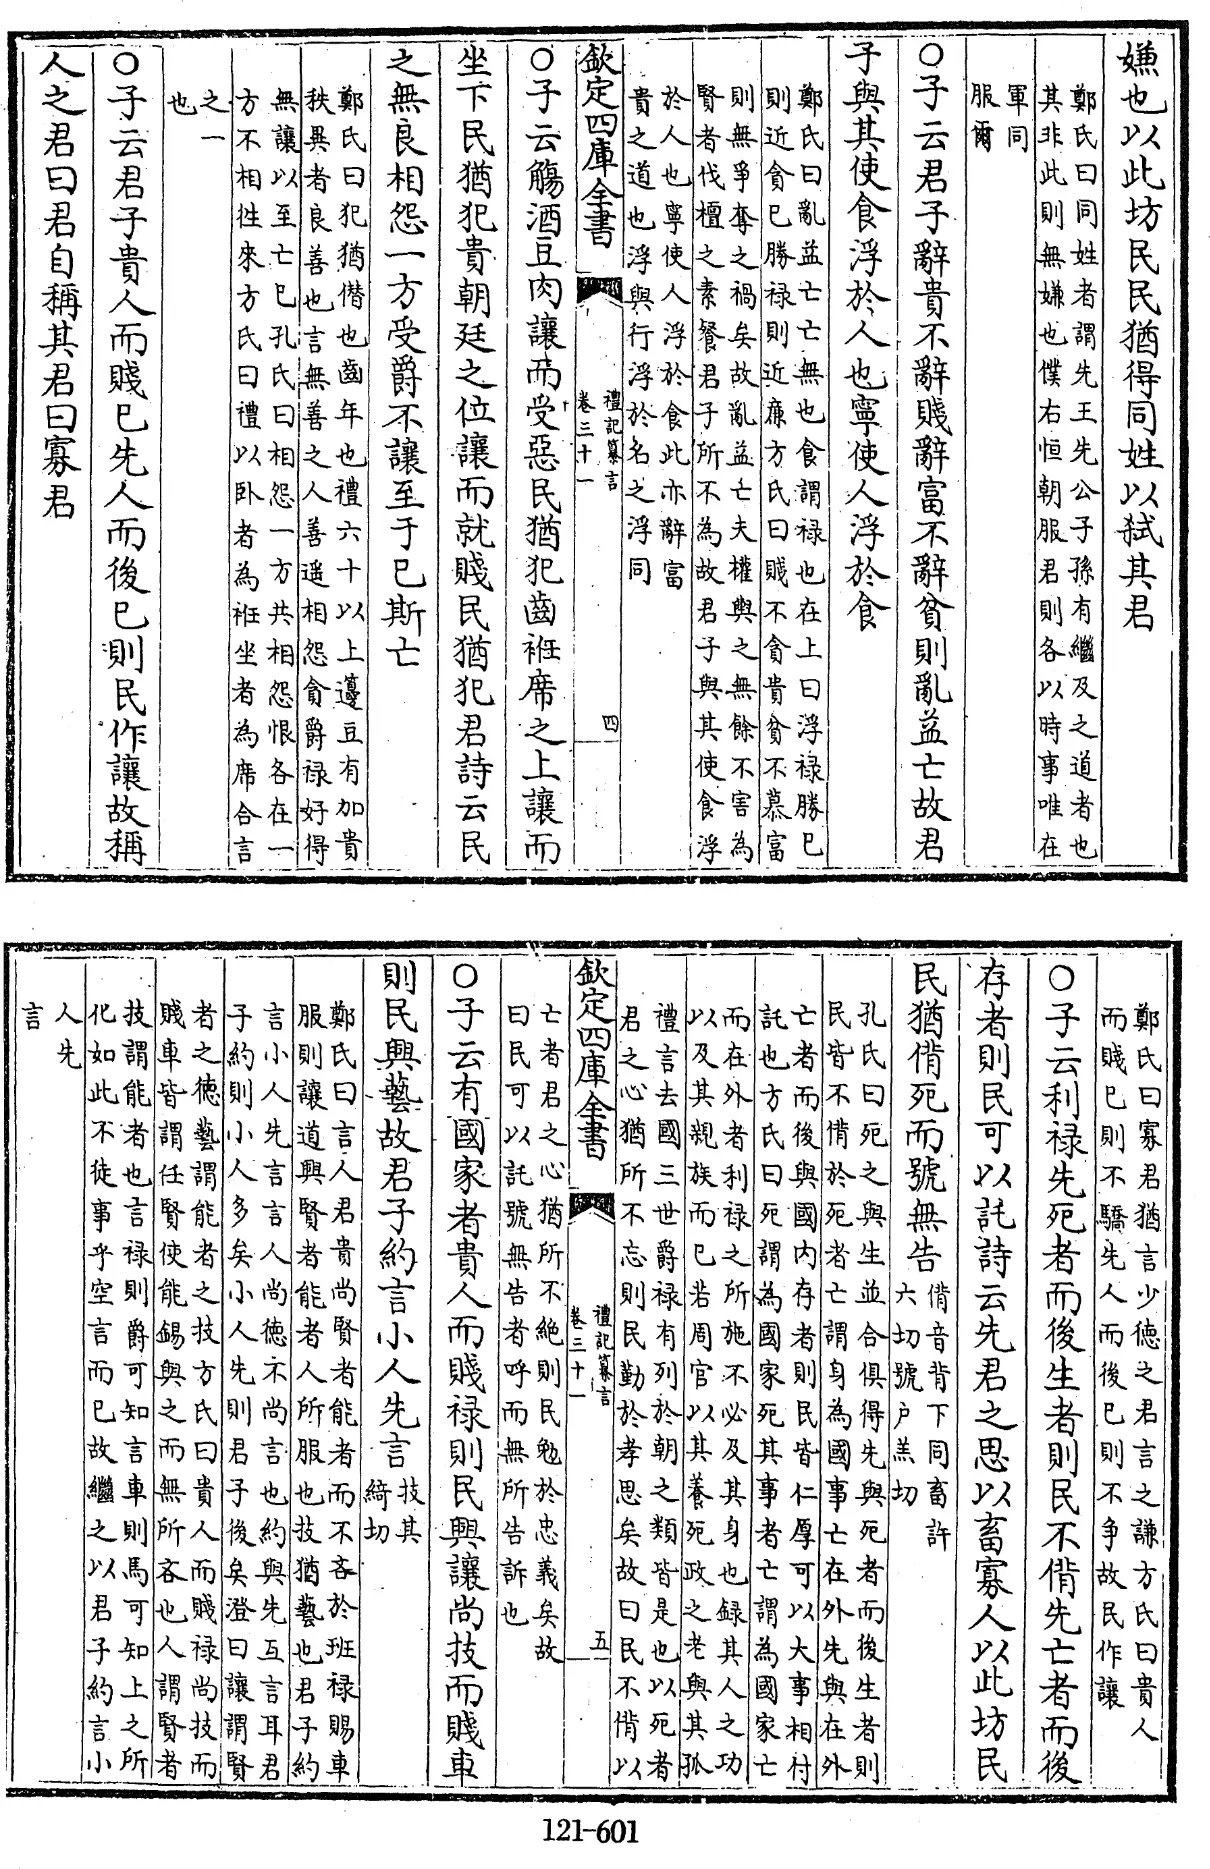 嫌也以此坊民民猶得同姓以弑其君
鄭氏曰同姓者謂先王先公子孫有繼及之道者也
其非此則無嫌也僕右恒朝服君則各以時事唯在
軍同
服爾
○子云君子辭貴不辭賤辭富不辭貧則亂益亡故君
子與其使食浮於人也寧使人浮於食
鄭氏曰亂益亡亡無也食謂禄也在上曰浮禄勝已
則近貪已勝禄則近亷方氏曰賤不貪貴貧不慕富
則無爭奪之禍矣故亂益亡夫權輿之無餘不害為
賢者伐檀之素餐君子所不為故君子與其使食浮
於人也寧使人浮於食此亦辭富
貴之道也浮與行浮於名之浮同
欽定四庫全書
禮記纂言
卷三十一
四
○子云觴酒豆肉讓而受惡民猶犯齒袵席之上讓而
坐下民猶犯貴朝廷之位讓而就賤民猶犯君詩云民
之無良相怨一方受爵不讓至于已斯亡
鄭氏曰犯猶僣也齒年也禮六十以上籩豆有加貴
秩異者良善也言無善之人善遥相怨貪爵禄好得
無讓以至亡已孔氏曰相怨一方共相怨恨各在一
方不相徃來方氏曰禮以卧者為袵坐者為席合言
之一
也
○子云君子貴人而賤已先人而後已則民作讓故稱
人之君曰君自稱其君曰寡君
鄭氏曰寡君猶言少徳之君言之謙方氏曰貴人
而賤已則不驕先人而後已則不争故民作讓
○子云利禄先死者而後生者則民不偝先亡者而後
存者則民可以託詩云先君之思以畜寡人以此坊民
民猶偝死而號無告
偝音背下同畜許
六切號户羔切
孔氏曰死之與生並合俱得先與死者而後生者則
民皆不偝於死者亡謂身為國事亡在外先與在外
亡者而後與國内存者則民皆仁厚可以大事相付
託也方氏曰死謂為國家死其事者亡謂為國家亡
而在外者利禄之所施不必及其身也録其人之功
以及其親族而已若周官以其養死政之老與其孤
禮言去國三世爵禄有列於朝之類皆是也以死者
君之心猶所不忘則民勤於孝思矣故曰民不偝以
欽定四庫全書
禮記纂言
卷三十一
五
亡者君之心猶所不絶則民勉於忠義矣故
曰民可以託號無告者呼而無所告訴也
○子云有國家者貴人而賤禄則民興讓尚技而賤車
則民興藝故君子約言小人先言
技其
綺切
鄭氏曰言人君貴尚賢者能者而不吝於班禄賜車
服則讓道興賢者能者人所服也技猶藝也君子約
言小人先言言人尚徳不尚言也約與先互言耳君
子約則小人多矣小人先則君子後矣澄曰讓謂賢
者之徳藝謂能者之技方氏曰貴人而賤禄尚技而
賤車皆謂任賢使能錫與之而無所吝也人謂賢者
技謂能者也言禄則爵可知言車則馬可知上之所
化如此不徒事乎空言而已故繼之以君子約言小
人先
言
121-601